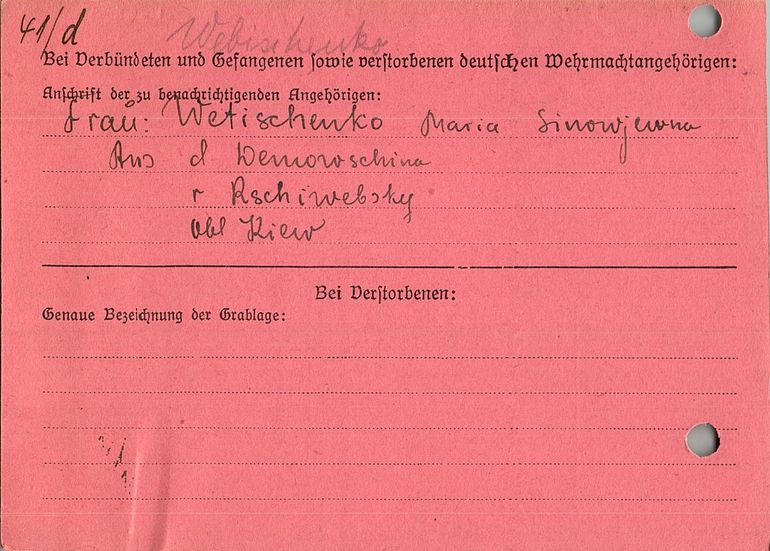 41/d Webischenko
Bei Verbündeten und Gefangenen sowie verstorbenen deutschen Wehrmachtangehörigen:
Anschrift der zu benachrichtigenden Angehörigen:
Frau: Wetischenko Maria Sinowjewna
Aus d Demowschina
r Rschiwebsky
Obl Kiew
Bei Verstorbenen:
Genaue Bezeichnung der Grablage: